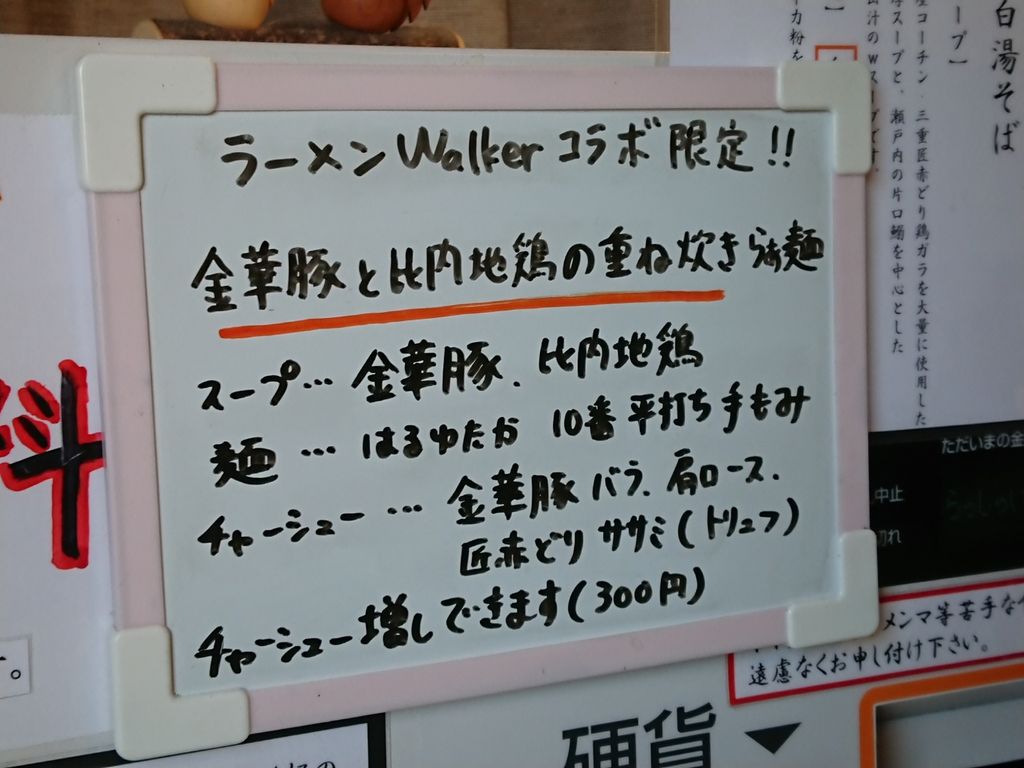 ラーメンWalkerコラボ限定!!
金華豚と比内地鶏の重ね炊きらぁ麺
スープ… 金華豚、比内地鶏
麺 … はるゆたか 10番 平打ち手もみ
チャーシュー … 金華豚バラ、肩ロース、
匠赤どり ササミ(トリュフ)
チャーシュー増しできます(300円)
白湯そば
ープ】
コーチン、三重匠赤どり鶏ガラを大量に使用した
スープと、瀬戸内の片口鰯を中心とした
料
ただいまの金
中止
切れ
メンマ等苦手な
遠慮なくお申し付け下さい。
硬貨▼